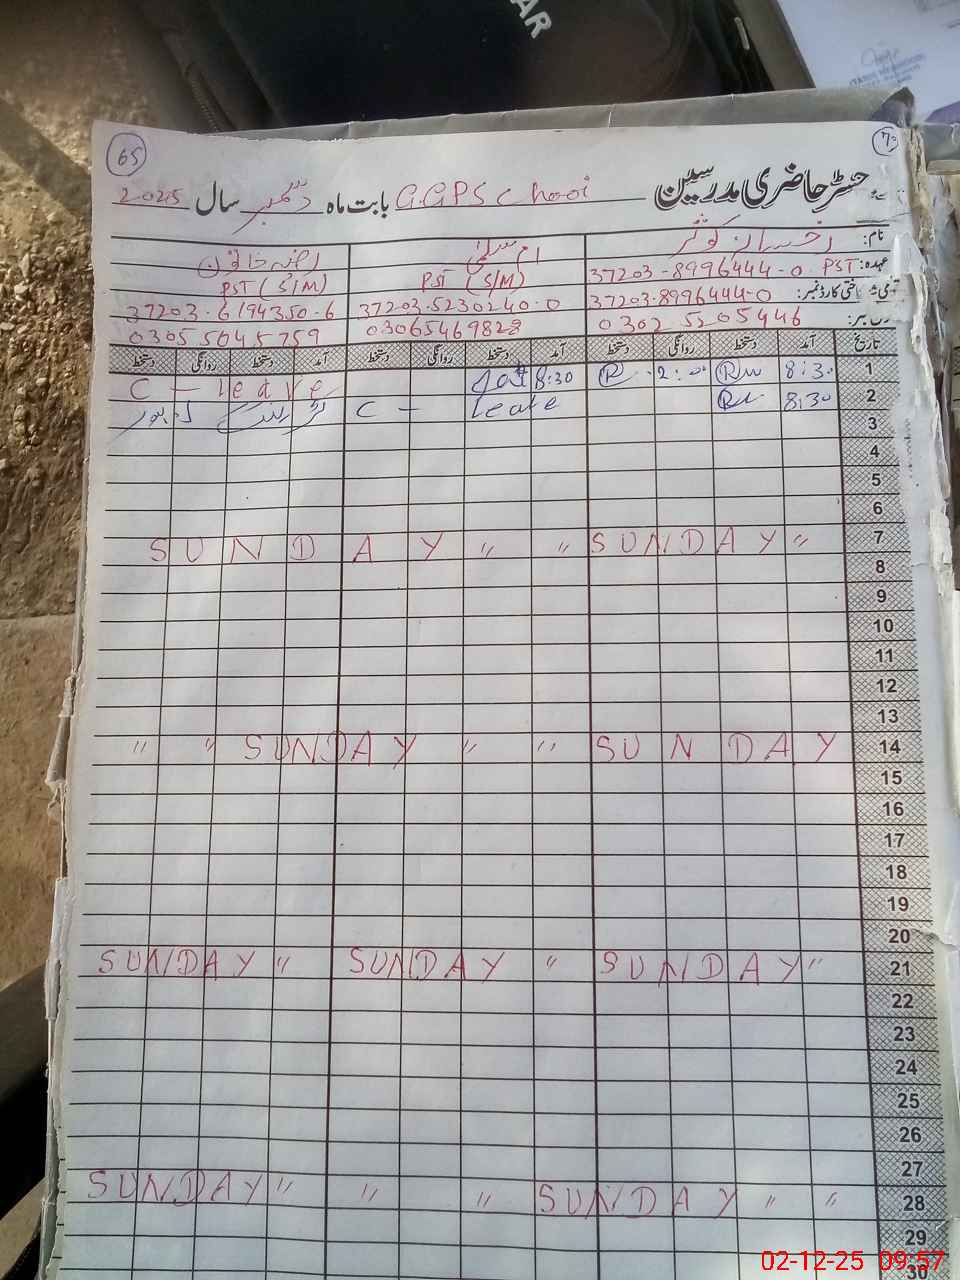 AR
65
رجسٹر حاضری مدرسین G.GPS Chooi بابت ماہ دسمبر سال 2025
نام: رخسانہ کوثر ام سلمیٰ رضیہ خاتون
عہدہ: PST 37203-8996444-0 PST (S/M) PST (S/M)
37203-8996444-0 37203-5230240-0 37203-6194350-6
0302 5205446 03065469828 0305 5645759
تاریخ آمد دستخط روانگی دستخط آمد دستخط روانگی دستخط آمد دستخط روانگی دستخط
1 8:30 2:00 8:30 C - leave
2 8:30 C - Leave
3
4
5
6
7 SUNDAY " " SUNDAY "
8
9
10
11
12
13
14 " " SUNDAY " " SUNDAY
15
16
17
18
19
20
21 SUNDAY " SUNDAY " SUNDAY "
22
23
24
25
26
27
28 SUNDAY " " " SUNDAY " "
29
30
02-12-25 09:57